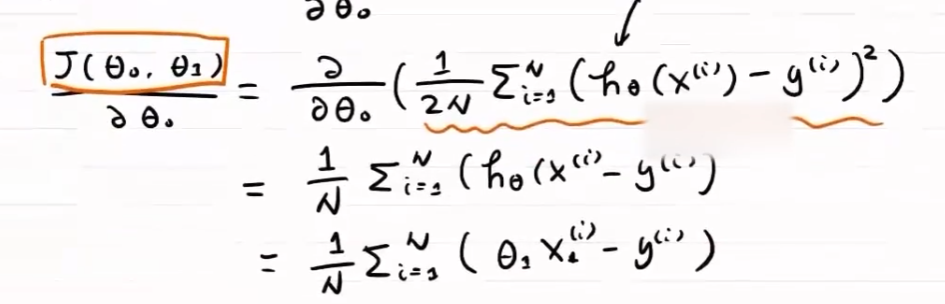 ∂θ₀
J(θ₀, θ₁) / ∂θ₀ = ∂/∂θ₀ ( 1/2N Σᵢ₌₁ᴺ (hθ(x⁽ⁱ⁾) - y⁽ⁱ⁾)² )
= 1/N Σᵢ₌₁ᴺ (hθ(x⁽ⁱ⁾ - y⁽ⁱ⁾)
= 1/N Σᵢ₌₁ᴺ ( θ₁ x₁⁽ⁱ⁾ - y⁽ⁱ⁾ )